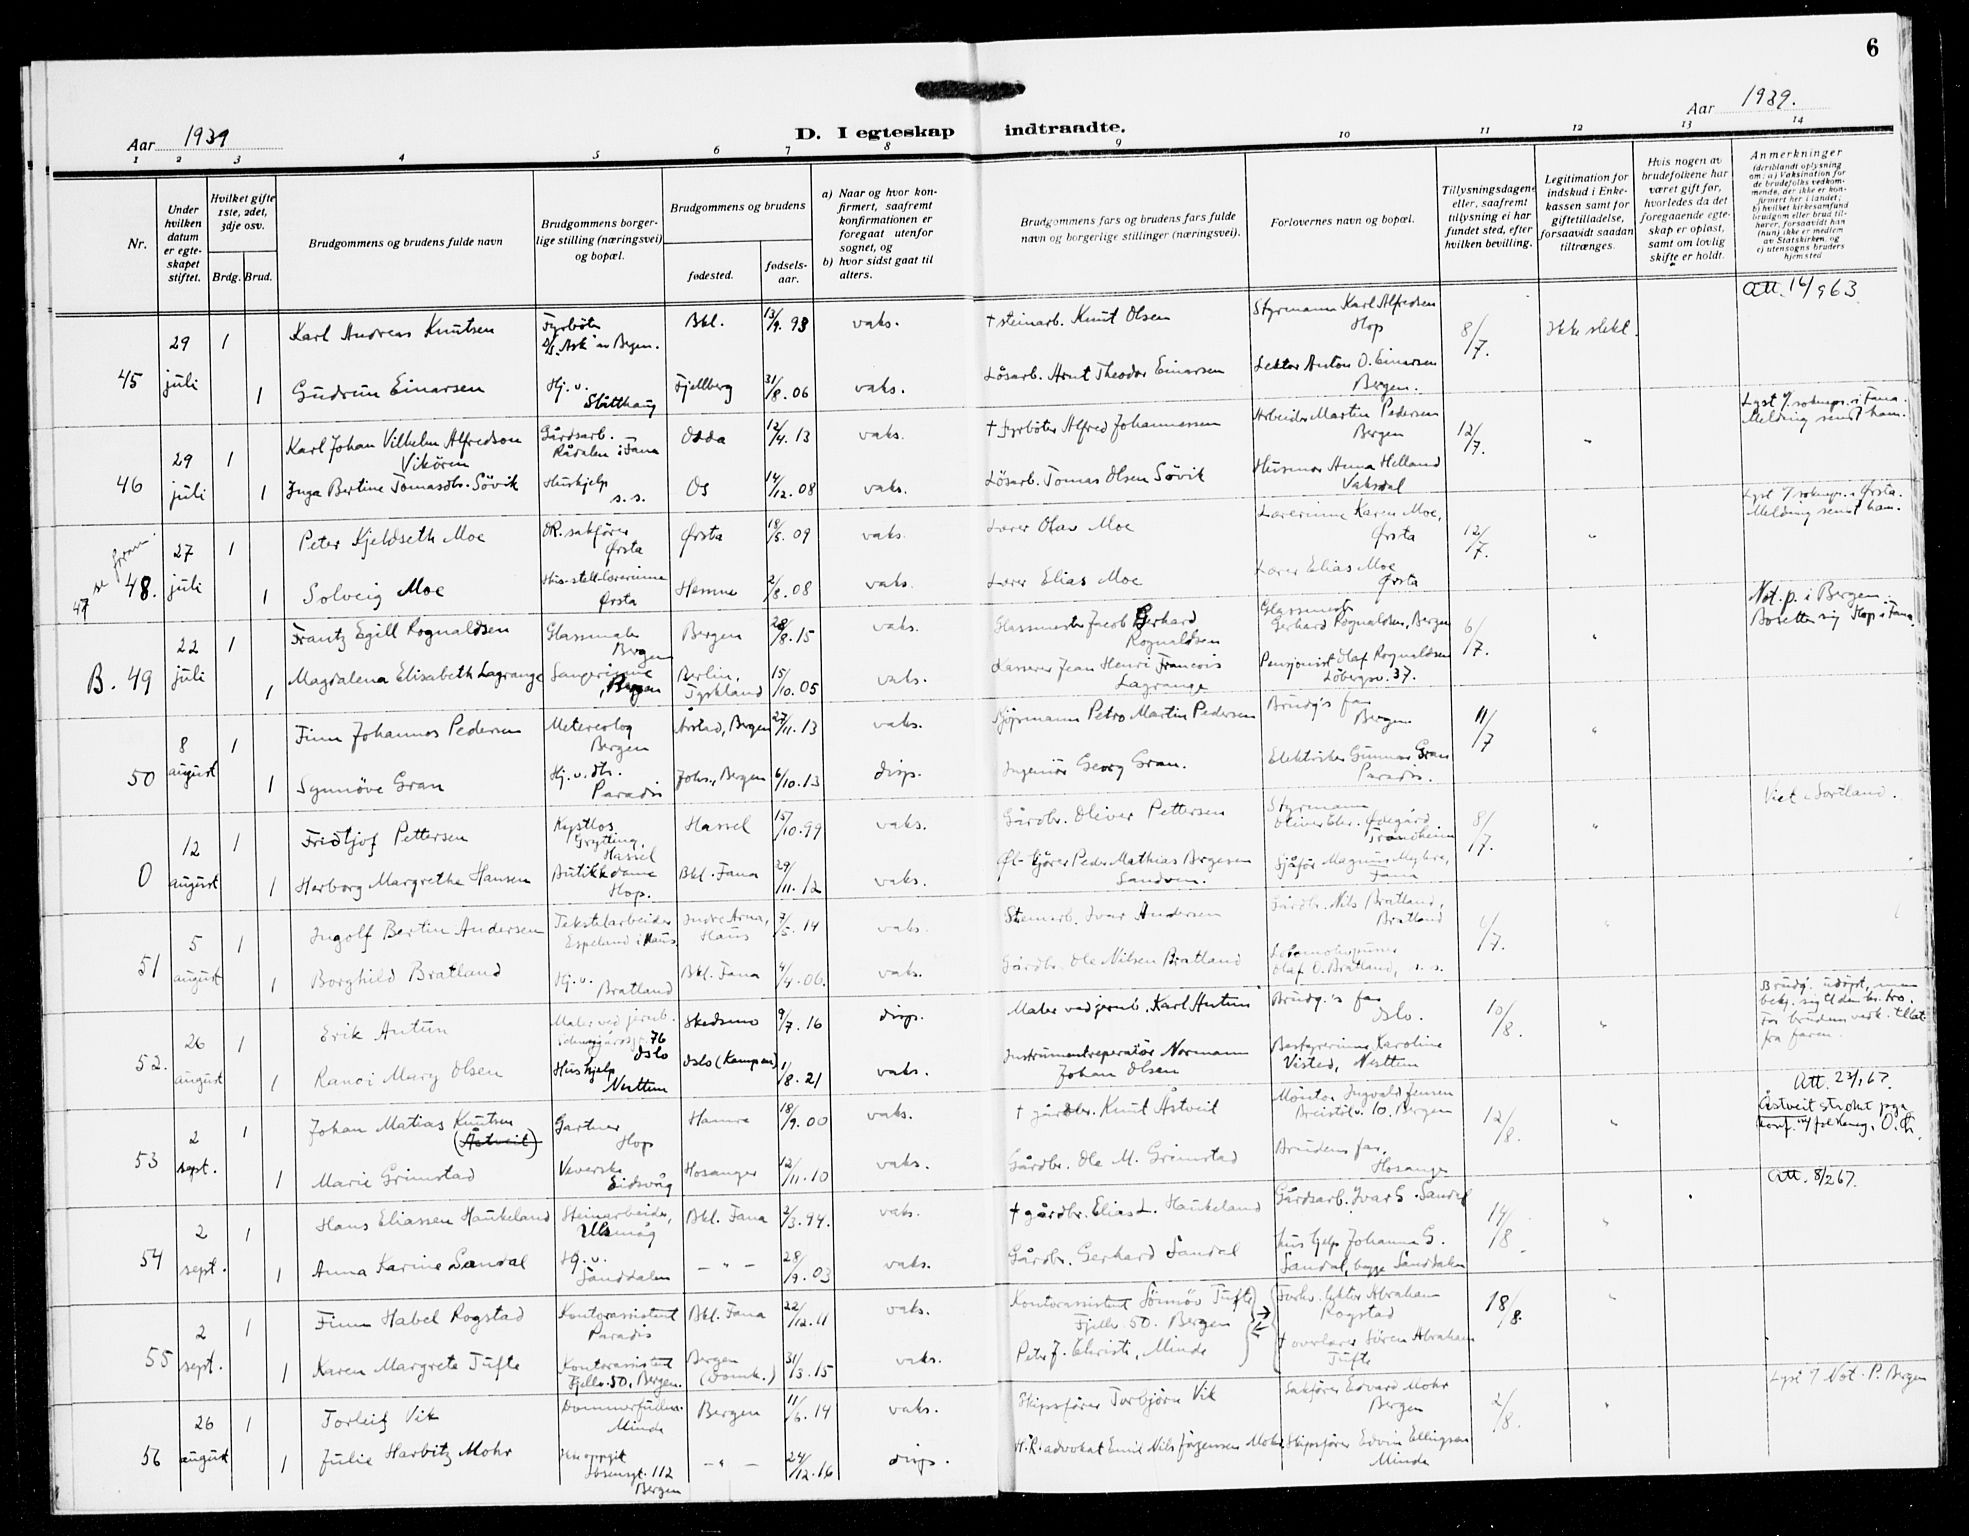 6
Aar 1939
D. I egteskap indtraadte.
Aar 1939.
1 2 3 4 5 6 7 8 9 10 11 12 13 14
Nr.
Under hvilken datum er egte-skapet stiftet.
Hvilket gifte 1ste, 2det, 3dje osv.
Brdg. Brud.
Brudgommens og brudens fulde navn
Brudgommens borger-lige stilling (næringsvei) og bopæl.
Brudgommens og brudens
fødested.
fødsels-aar.
a) Naar og hvor kon-firmert, saafremt konfirmationen er foregaat utenfor sognet, og
b) hvor sidst gaat til alters.
Brudgommens fars og brudens fars fulde navn og borgerlige stillinger (næringsvei).
Forlovernes navn og bopæl.
Tillysningsdagene eller, saafremt tillysning ei har fundet sted, efter hvilken bevilling.
Legitimation for indskud i Enke-kassen samt for giftetilladelse, forsaavidt saadan tiltrænges.
Hvis nogen av brudefolkene har været gift før, hvorledes da det foregaaende egte-skap er opløst, samt om lovlig skifte er holdt.
Anmerkninger (deriblandt oplysning om: a) Vaksination for de brudefolks vedkom-mende, der ikke er kon-firmert her i landet; b) hvilket kirkesamfund brudgom eller brud til-hører, forsaavidt han (hun) ikke er medlem av Statskirken, og c) utensogns bruders hjemsted
Att. 16/9 63
45 29 juli 1 Karl Andreas Knutsen Fyrbøter D/S "Ask" av Bergen. Bkl. 13/9. 93 vaks. † steinarb. Knut Olsen Styrmann Karl Alfredsen Hop 8/7. Ikke slekt.
1 Gudrun Einarsen Hj. v. Slåtthaug Fjellberg 31/8. 06 vaks. Løsarb. Arnt Theodor Einarsen Lektor Anton O. Einarsen Bergen.
46 29 juli 1 Karl Johan Vilhelm Alfredson Vikören Gårdsarb. Rådalen i Fana Odda 12/4. 13 vaks. † fyrbøter Alfred Johannessen Arbeider Martin Pedersen Bergen 12/7. " Lyst t/ sokнepr. i Fana. Melding sendt ham.
1 Inga Bertine Tomasdtr. Sövik Hushjelp s. s. Os 14/12. 08 vaks. Løsarb. Tomas Olsen Sövik Husmor Anna Helland Vaksdal
47 se foran
48. 27 juli 1 Peter Kjeldseth Moe OR. sakfører Ørsta Ørsta 18/5. 09 vaks. Lærer Olav Moe Lærerinne Karen Moe, Ørsta 12/7. " Melding sendt ham.
1 Solveig Moe Hus-stell-lærerinne Ørsta Hemne 2/8. 08 vaks. Lærer Elias Moe Lærer Elias Moe Ørsta
B. 49 22 juli 1 Frantz Egill Rognaldsen Glassmaler Bergen Bergen 28/8. 15 vaks. Glassmester Jacob Gerhard Rognaldsen Glassmester Gerhard Rognaldsen, Bergen 6/7. " Not. p. i Bergen. Bosetter sig Hop i Fana.
1 Magdalena Elisabeth Lagrange Sangerinne, Bergen Berlin, Tyskland 15/10. 05 vaks. Kasserer Jean Henri Francois Lagrange Pensjonist Olaf Rognaldsen Löbergsv. 37.
50 8 august 1 Finn Johannes Pedersen Metereolog Bergen Årstad, Bergen 27/11. 13 vaks. Kjøpmann Petro Martin Pedersen Brudg's far Bergen. 11/7 "
1 Synnöve Gran Hj. v. dtr. Paradis Johs., Bergen 6/10. 13 disp. Ingeniør Georg Gran. Elektriker Gunnar Gran Paradis.
0 12 august 1 Fridtjof Pettersen Hassel Hassel 15/10. 99 vaks. Gårdbr. Oliver Pettersen Styrmann Ødegård Trondheim 8/7. " Viet i Sortland.
1 Herborg Margrethe Hansen Butikkdame Hop. Bkl. Fana 29/11. 12 vaks. Peder Mathias Bergesen Sandven. Sjåfør Magnus Myhre, Fana
51 5 august 1 Ingolf Bertin Andersen Tekstilarbeider Espeland i Haus Indre Arna, Haus 7/5. 14 vaks. Steinarb. Ivar Andersen Gårdbr. Nils Bratland, Bratland 6/7. "
1 Borghild Bratland Hj. v. Bratland Bkl. Fana 4/4. 06. vaks. Gårdbr. Ole Nilsen Bratland Olaf O. Bratland, s. s.
52. 26 august 1 Erik Antun Maler ved jernb. 76 Oslo Skedsmo 9/7. 16 disp. Maler ved jernb. Karl Antun Brudg.'s far Oslo. 10/8. " Brudg. udöpt, men bekj. sig til den kr. tro. For bruden verk. tillat. fra faren.
1 Randi Mary Olsen Hushjelp Nesttun Oslo (Kampen) 1/8. 21 vaks. Instrumentreperatør Normann Johan Olsen Bestyrerinne Karoline Visted, Nesttun
53 2 sept. 1 Johan Matias Knutsen (Åstveit) Gartner Hop Hamre 18/9. 00 vaks. † gårdbr. Knut Åstveit Montør Ingvald Jensen Breistölv. 10. Bergen 12/8. " Att. 23/1 67. Åstveit strøket
1 Marie Grimstad Veverske Eidsvåg Hosanger 12/11. 10 vaks. Gårdbr. Ole M. Grimstad Brudens far, Hosanger
54 2 sept. 1 Hans Eliassen Haukeland Steinarbeider, Ulsmåg Bkl. Fana 2/3. 94. vaks. † gårdbr. Elias L. Haukeland Gårdsarb. Ivar G. Sandal 14/8. " Att. 8/2 67.
1 Anna Karine Sandal Hj. v. Sanddalen — " — 28/9. 03 vaks. Gårdbr. Gerhard Sandal Hushjelp Johanna G. Sandal, begge Sanddalen
55 2 sept. 1 Finn Habel Rogstad Kontorassistent Paradis Bkl. Fana 22/12. 11 vaks. Kontorassistent Sönnöv Tufte Fjellv. 50. Bergen Forhv. lektor Abraham Rogstad 18/8. "
1 Karen Margrete Tufte Kontorassistent Fjellv. 50, Bergen. Bergen (Domk.) 31/3. 15 vaks. Peter J. Christi, Minde † overlærer Sören Abraham Tufte
56 26 august 1 Torleif Vik Dommerfullm. Minde Bergen 11/6. 14 vaks. Skipsfører Torbjörn Vik Sakfører Edvard Mohr Bergen 2/8. " Lyst t/ Not. P. Bergen
1 Julie Harbitz Mohr Ikke oppgit Ibsensgt. 112 Bergen — " — 24/12. 16 disp. H.R. advokat Emil Nils Jörgensen Mohr Skipsfører Edvin Ellingsen Minde